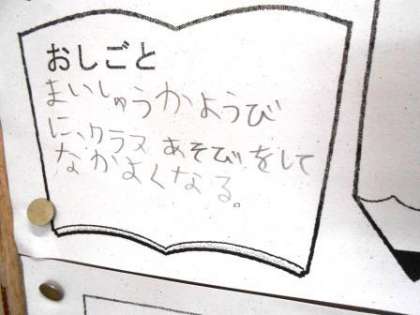 おしごと
まいしゅうかようび
に、クラスあそびをして
なかよくなる。